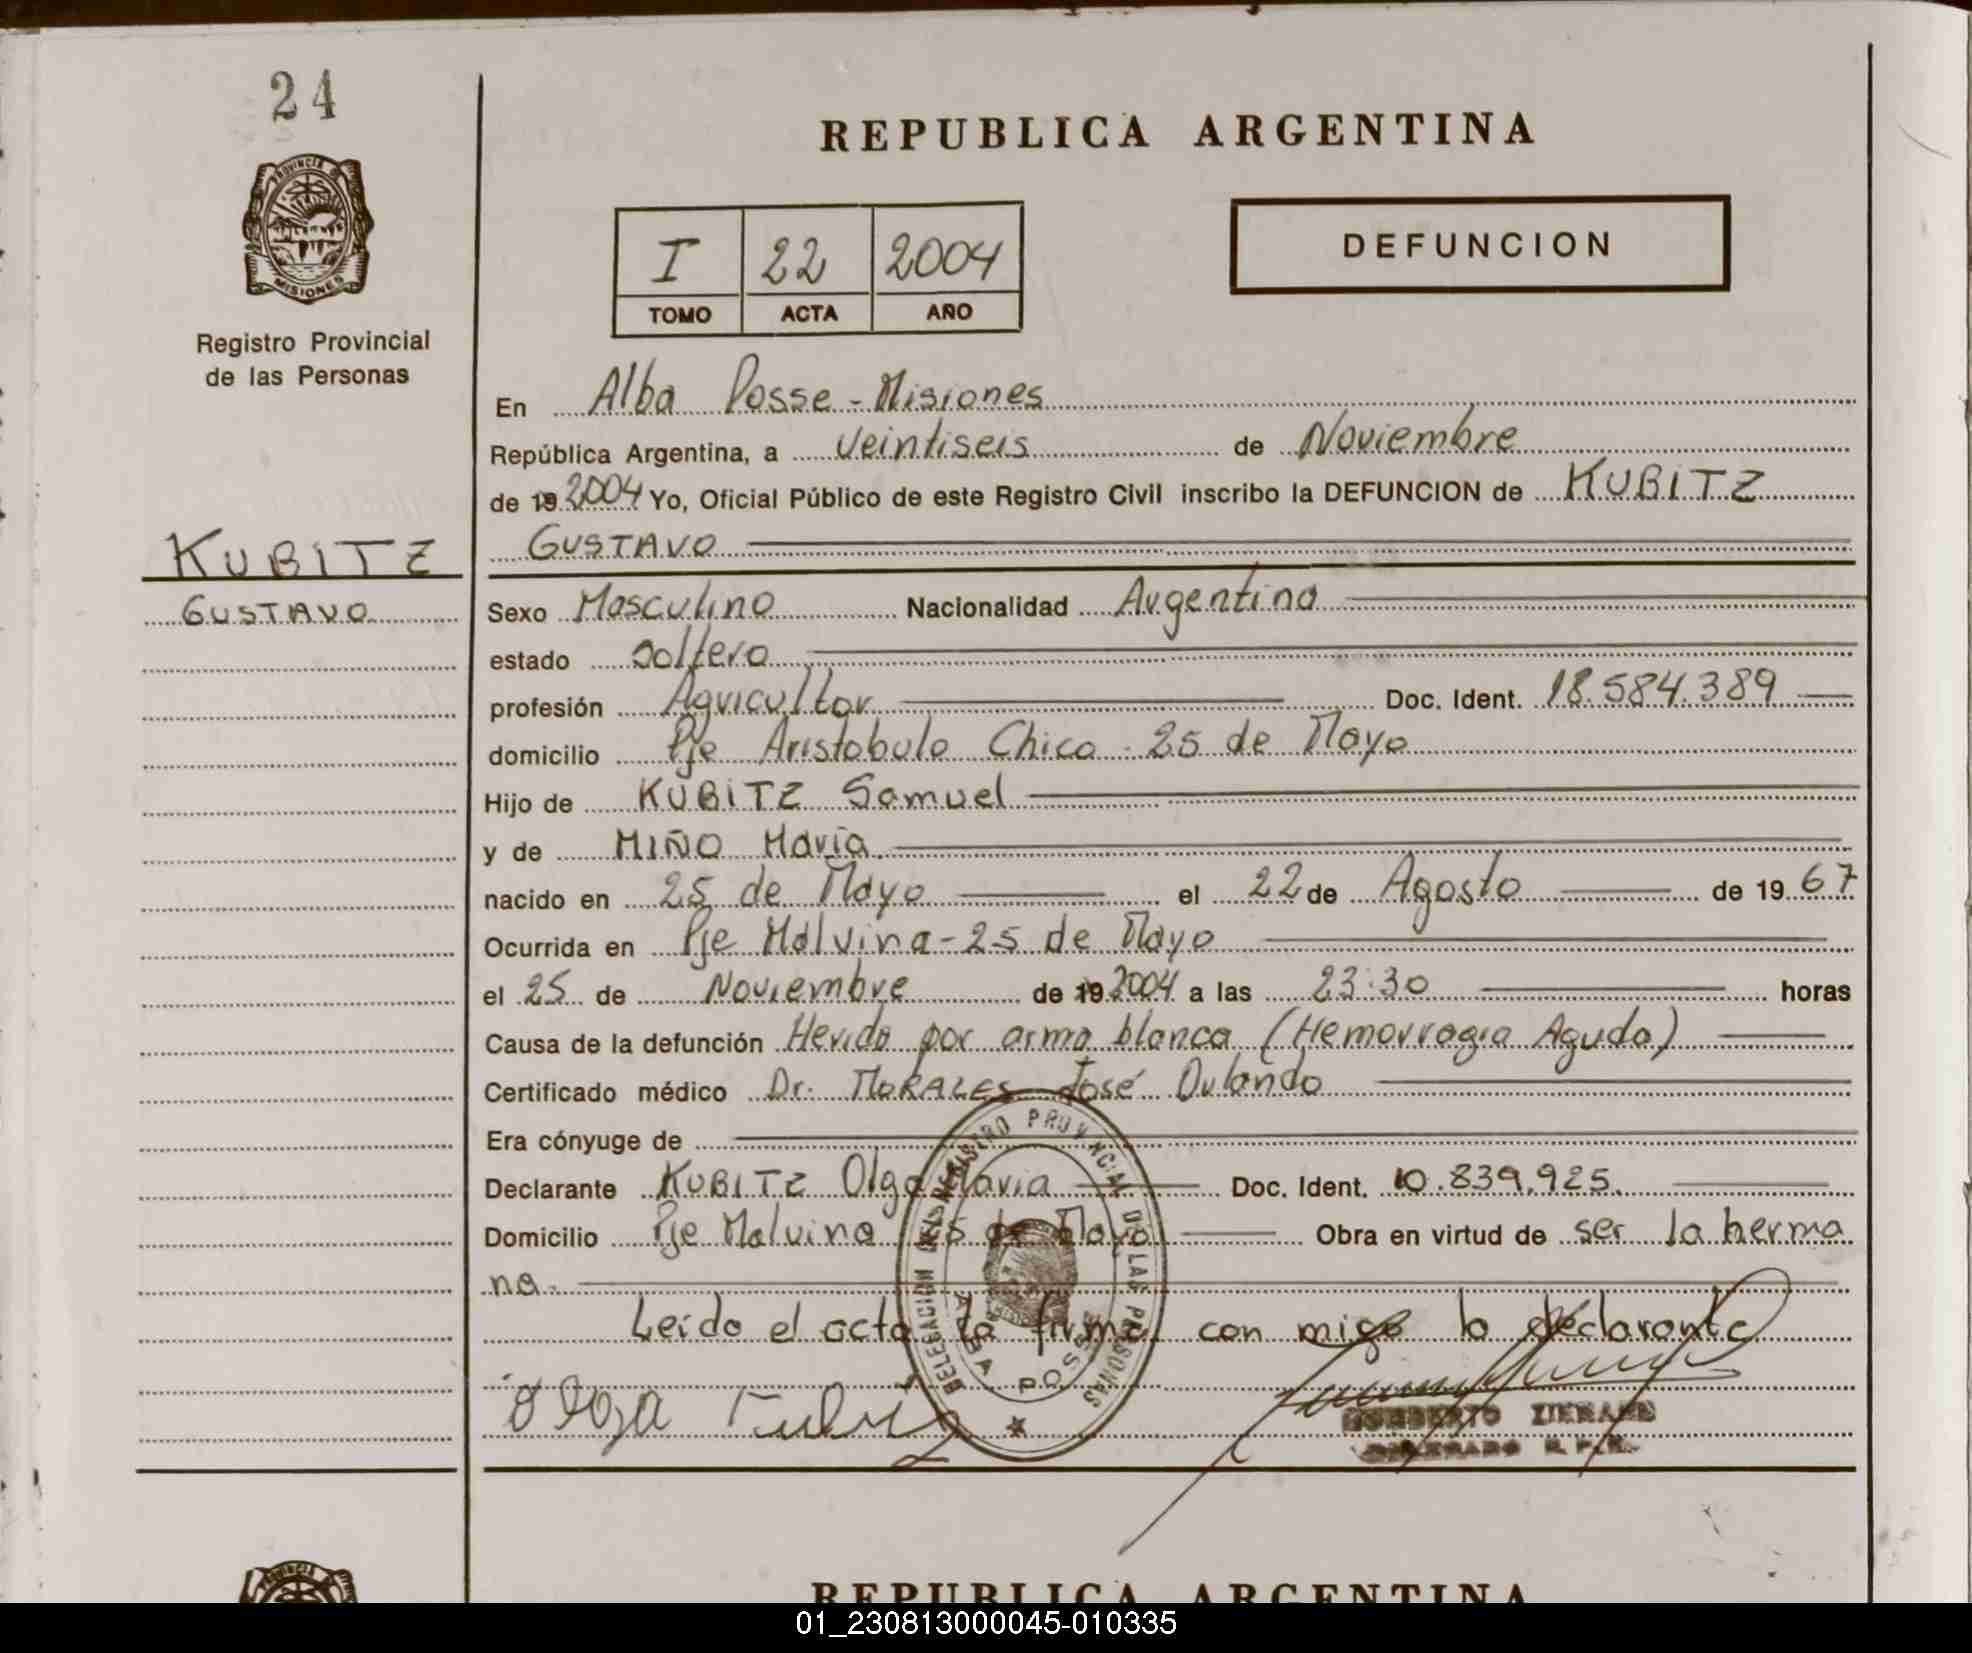 24
PROVINCIA DE
MISIONES
Registro Provincial
de las Personas
REPUBLICA ARGENTINA
I 22 2004
TOMO ACTA AÑO
DEFUNCION
En Alba Posse - Misiones
República Argentina, a veintiseis de Noviembre
de 19 2004 Yo, Oficial Público de este Registro Civil inscribo la DEFUNCION de KUBITZ
GUSTAVO
KUBITZ
GUSTAVO
Sexo Masculino Nacionalidad Argentina
estado soltero
profesión Agricultor Doc. Ident. 18.584.389
domicilio Pje Aristobulo Chico - 25 de Mayo
Hijo de KUBITZ Samuel
y de MIÑO María
nacido en 25 de Mayo el 22 de Agosto de 19 67
Ocurrida en Pje Malvina - 25 de Mayo
el 25 de Noviembre de 19 2004 a las 23:30 horas
Causa de la defunción Herida por arma blanca (Hemorragia Aguda)
Certificado médico Dr. MORALES José Orlando
Era cónyuge de
Declarante KUBITZ Olga María Doc. Ident. 10.839.925.
Domicilio Pje Malvina 25 de Mayo Obra en virtud de ser la herma
na.
Leído el acta la firma con migo la declarante
Olga Kubitz
DELEGACION DEL REGISTRO PROVINCIAL DE LAS PERSONAS
ALBA POSSE
REPUBLICA ARGENTINA
01_230813000045-010335